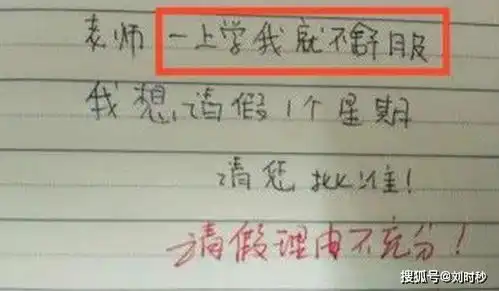 老师一上学我就不舒服
我想请假1个星期
请您批准!
请假理由不充分!
搜狐号@刘时秒